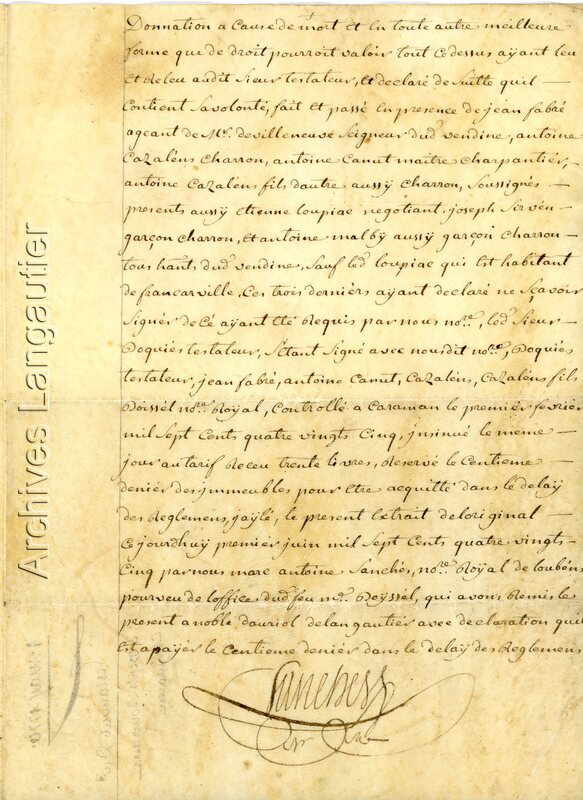 Donnation a Cause de mort et en toute autre meilleure
forme que de droit pourroit valoir tout ce dessus ayant leu
et Releu audit Sieur testateur, et declaré de Suitte quil
Contient Sa volonté, fait et passé en presence de jean fabré
ageant de Mr. devilleneuve Seigneur dud. vendine, antoine
Cazaléns Charron, antoine Camut maitre Charpantiér,
antoine Cazaléns fils dautre aussy Charron, Soussignés
presents aussy etienne loupiac negotiant, joseph Sirvén
garçon Charron, et antoine malby aussy garçon Charron
tous habts. dud. vendine, Sauf led. loupiac qui Est habitant
de francarville, Ces trois derniérs ayant declaré ne Sçavoir
Signér de Cé ayant eté Requis par nous nore., led. Sieur
Doquiés testateur, S'étant Signé avec nousdit nore., Doquiés
testateur, jean fabré, antoine Camut, Cazaléns, Cazaléns fils
Doissél nore. Royal, Controllé a Caraman le premiér fevriér
mil Sept Cents quatre vingts Cinq, insinué le meme
jour au tarif Receu trente livres, Reservé le Centieme
deniér des immeubles pour etre acquitté dans le delay
des Reglemens, le present extrait de loriginal
Ce jourdhuy premiér juin mil Sept Cents quatre vingts
Cinq par nous marc antoine Sanchés, nore. Royal de loubéns
pourveu de loffice dud. feu me. Doyssél, qui avons Remis le
present a noble dauriol delangautier avec declaration quil
Est a payér le Centieme deniér dans le delay des Reglemens
Sanchess
nre
Archives Langautier